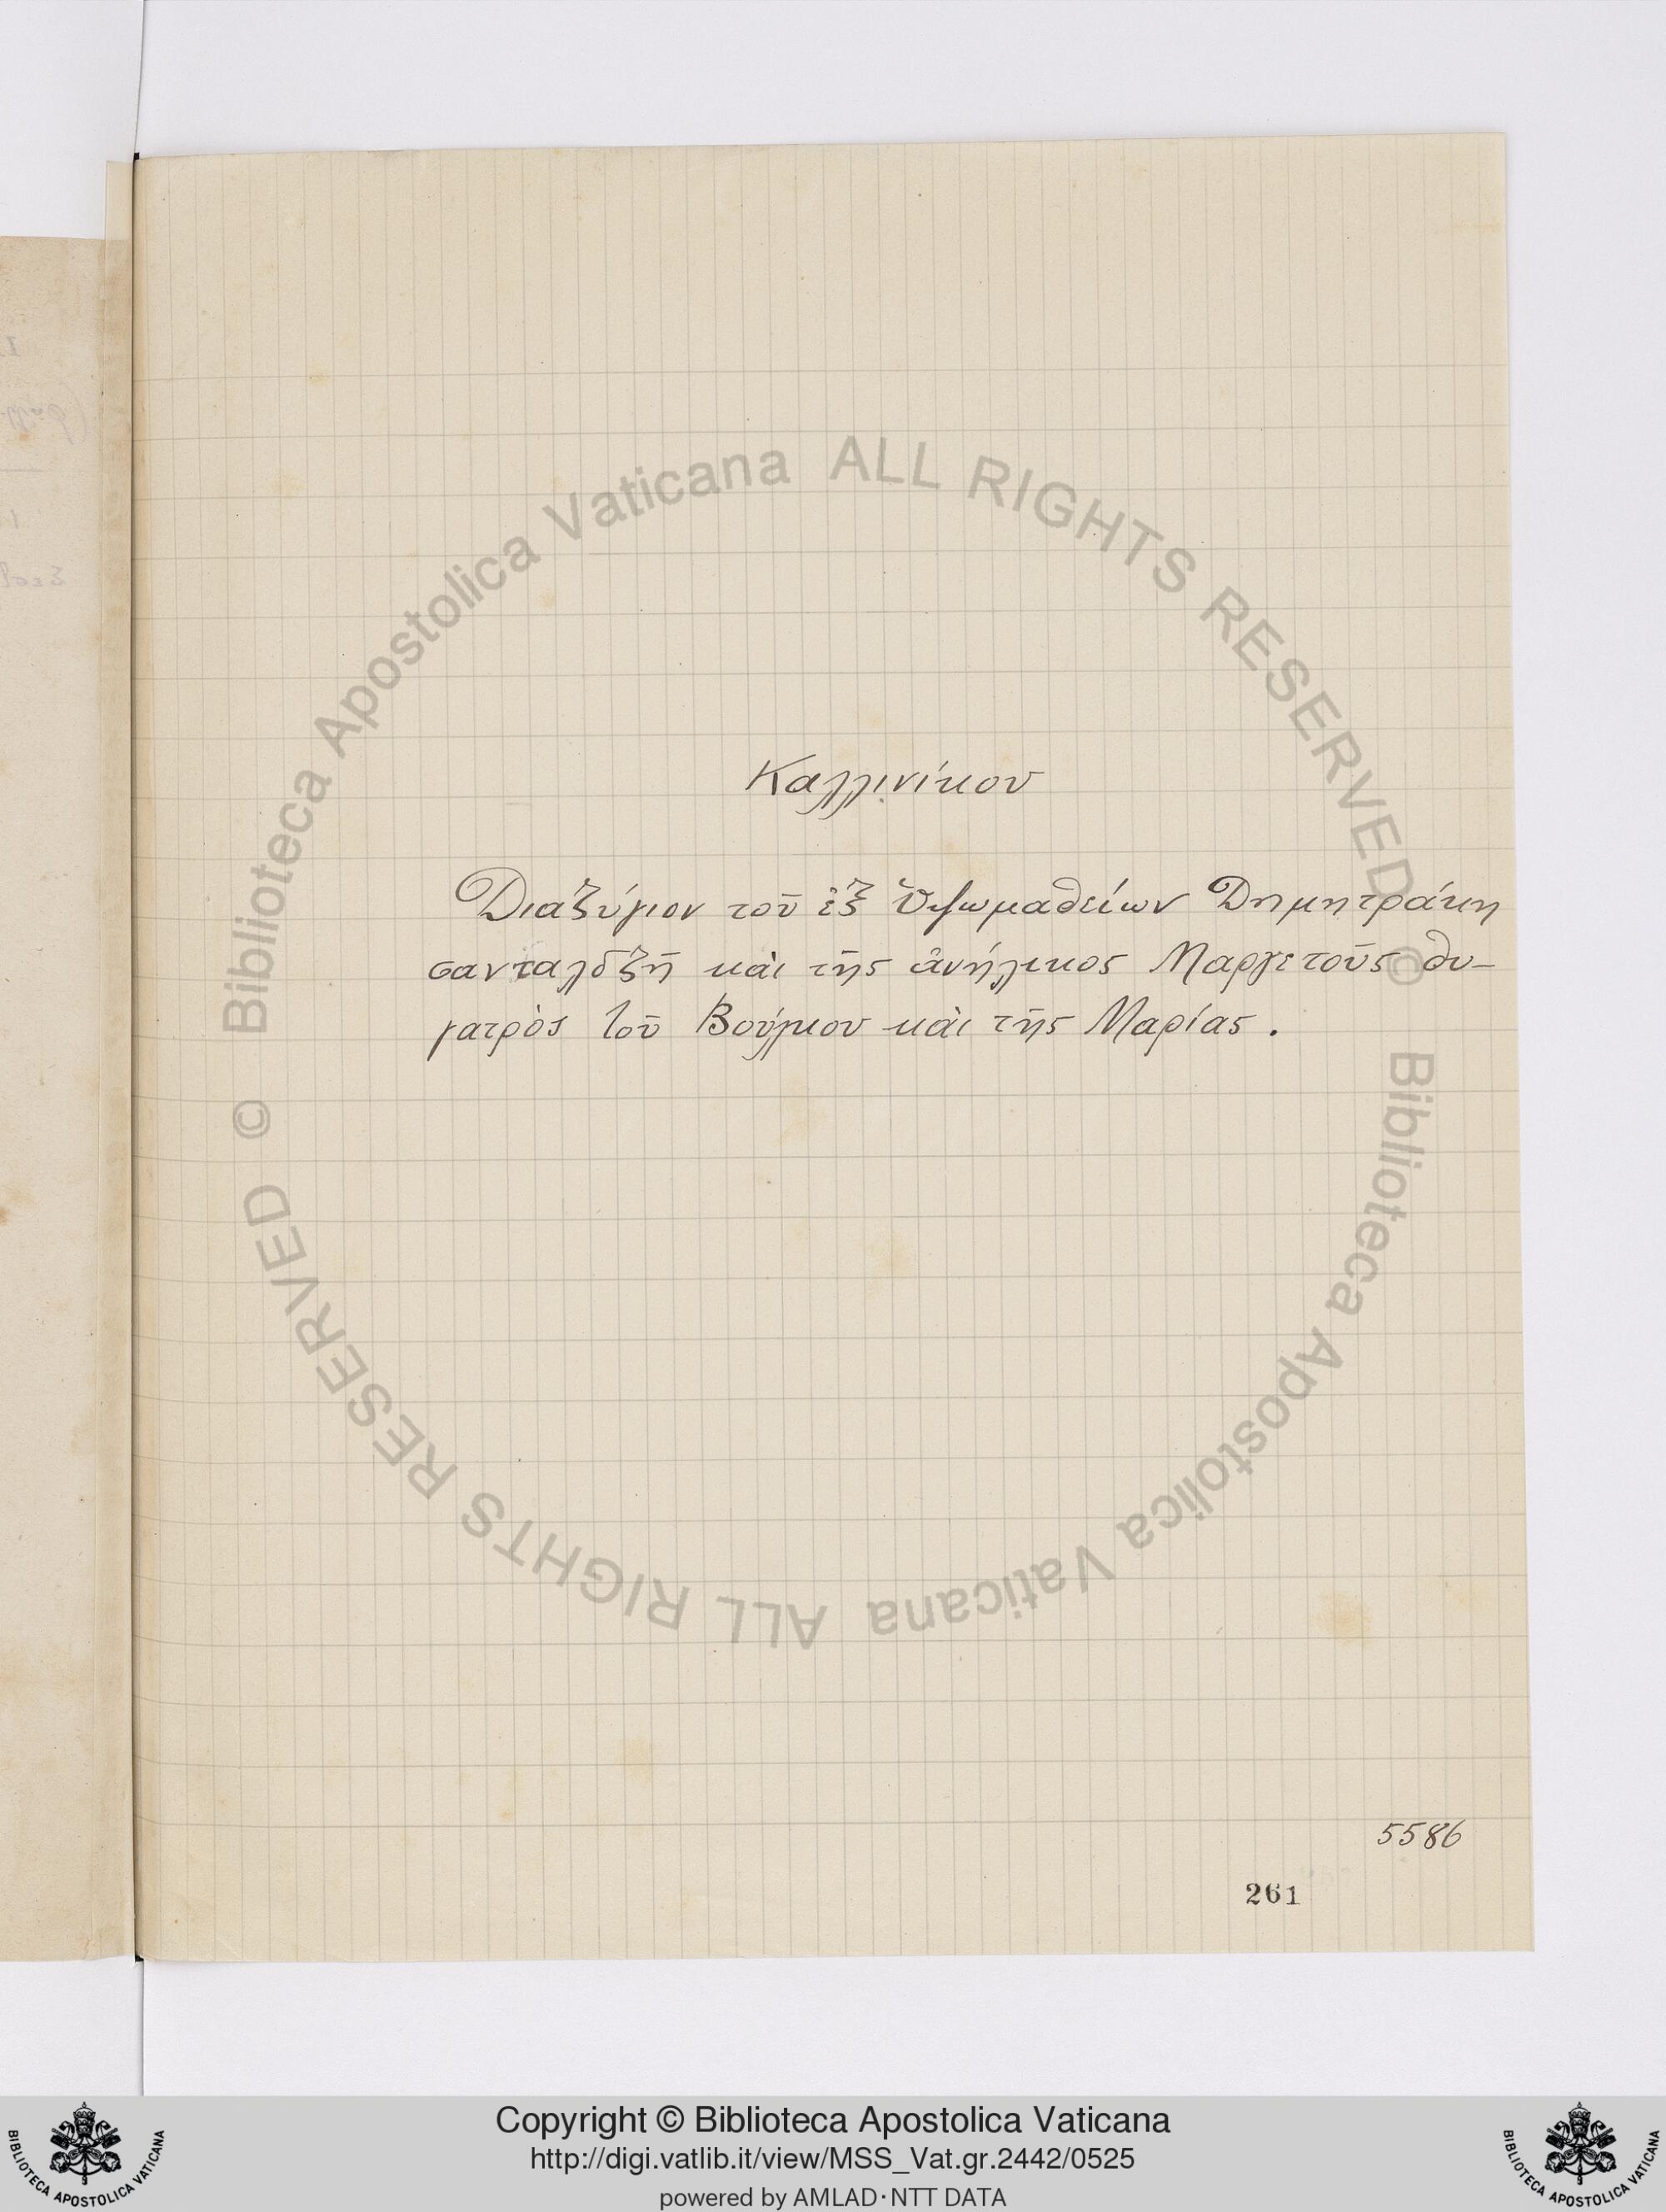 Καλλινίκου
Διαζύγιον τοῦ ἐξ Ὑψωμαθείων Δημητράκη
σανταλδζῆ καὶ τῆς ἀνήλικος Μαργετοῦς θυ-
γατρὸς τοῦ Βούλκου καὶ τῆς Μαρίας.
5586
261
© Biblioteca Apostolica Vaticana ALL RIGHTS RESERVED
© Biblioteca Apostolica Vaticana ALL RIGHTS RESERVED
Copyright © Biblioteca Apostolica Vaticana
http://digi.vatlib.it/view/MSS_Vat.gr.2442/0525
powered by AMLAD·NTT DATA
BIBLIOTECA APOSTOLICA VATICANA
BIBLIOTECA APOSTOLICA VATICANA